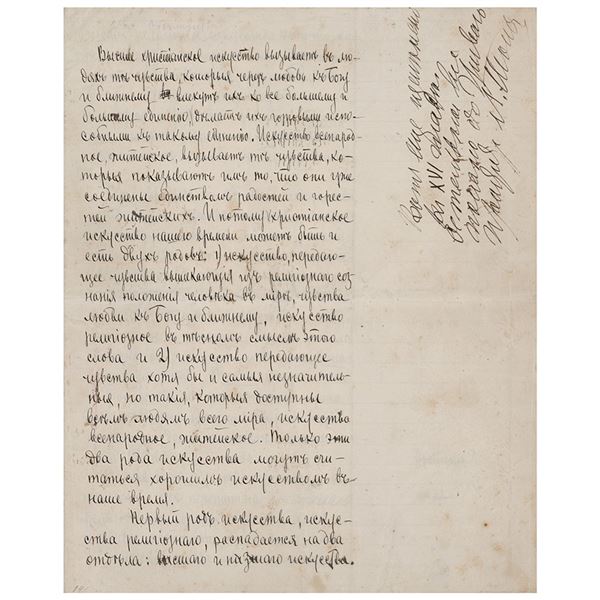 Высшее христіанское искусство вызываетъ въ лю-
дяхъ тѣ чувства, которыя черезъ любовь къ Богу
и ближнему влекутъ ихъ ко все большему и
большему единенію, дѣлаютъ ихъ готовыми и спо-
собными къ такому единенію. Искусство всенарод-
ное, житейское, вызываетъ тѣ чувства, ко-
торыя показываютъ имъ то, что они уже
соединены единствомъ радостей и горес-
тей житейскихъ. И потому христіанское
искусство нашего времени можетъ быть и
есть двухъ родовъ: 1) искусство, передаю-
щее чувства вытекающія изъ религіознаго соз-
нанія положенія человѣка въ мірѣ, чувства
любви къ Богу и ближнему, искусство
религіозное въ тѣсномъ смыслѣ этого
слова и 2) искусство передающее
чувства хотя бы и самыя незначитель-
ныя, но такія, которыя доступны
всѣмъ людямъ всего міра, искусство
всенародное, житейское. Только эти
два рода искусства могутъ счи-
таться хорошимъ искусствомъ въ
наше время.
Первый родъ искусства, искус-
ства религіознаго, распадается на два
отдѣла: высшаго и низшаго искусства.
XVI